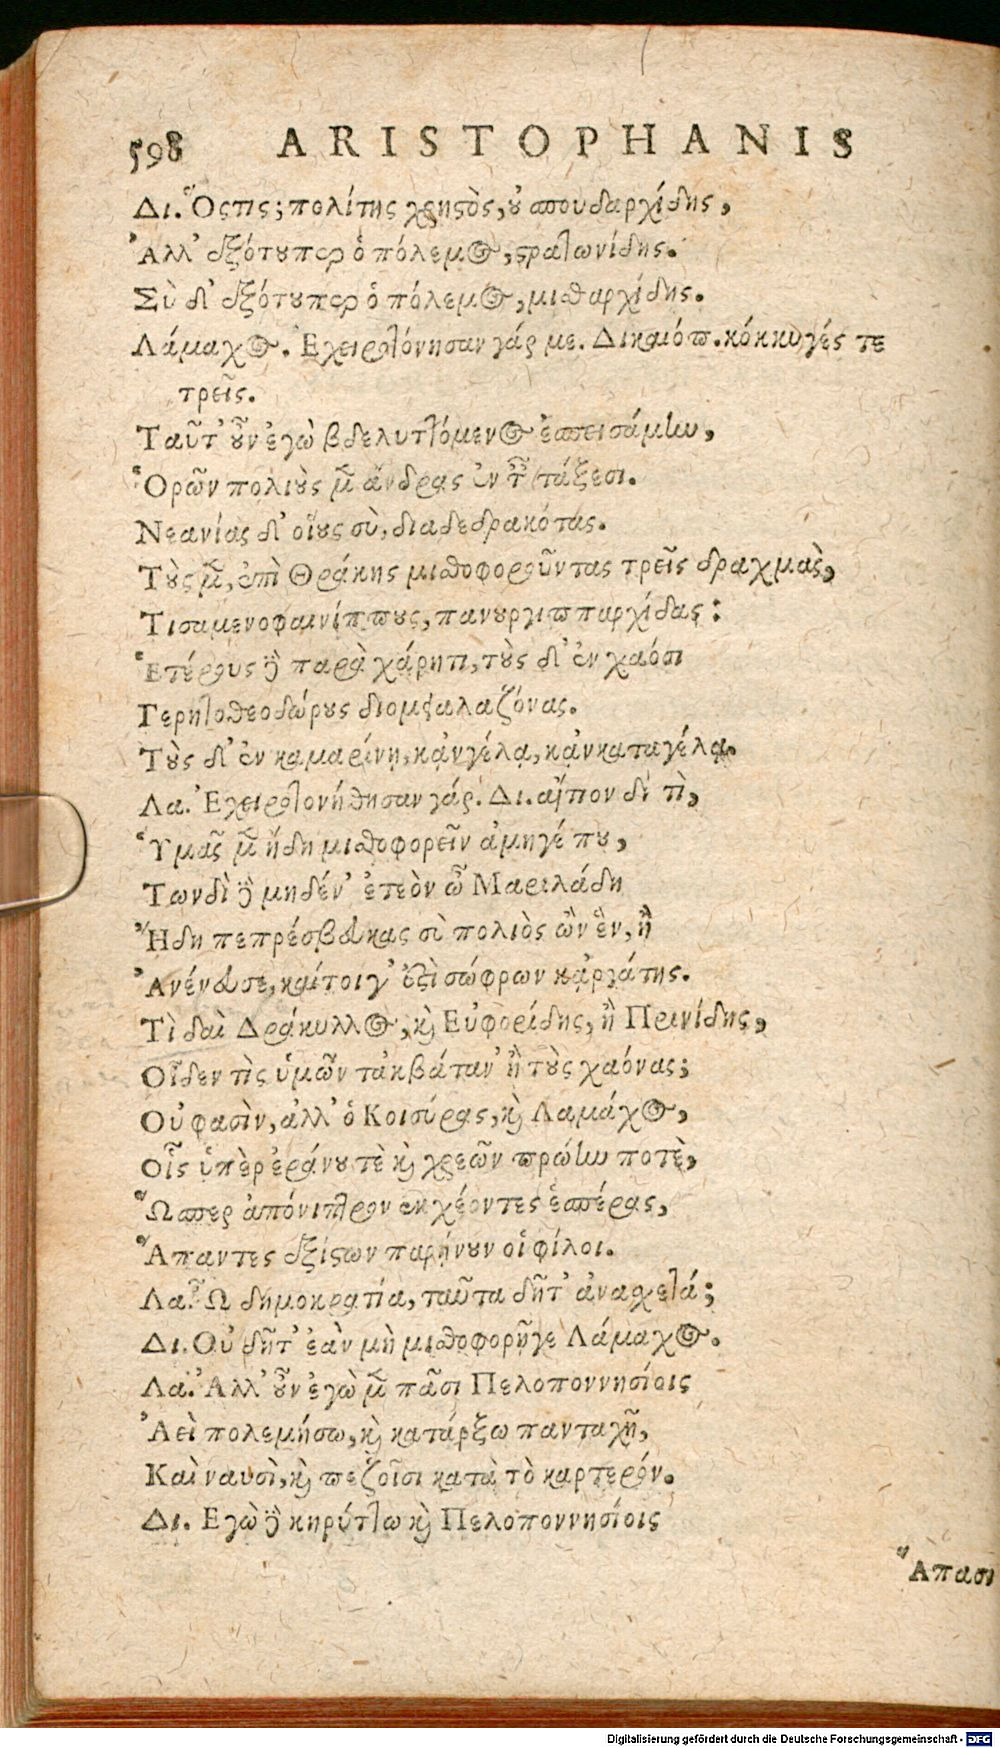 598 ARISTOPHANIS
Δι. Ὅςτις; πολίτης χρηςὸς, ȣ σπουδαρχίδης,
Ἀλλ' ἐξότȣπερ ὁ πόλεμος, ςρατωνίδης.
Σὺ δ' ἐξότȣπερ ὁ πόλεμος, μισθαρχίδης.
Λάμαχος. Ἐχειροτόνησαν γάρ με. Δικαιόπ. κόκκυγές τε
τρεῖς.
Ταῦτ' ȣν ἐγὼ βδελυττόμενος ἐσπεισάμην,
Ὁρῶν πολιὺς μ̃ ἄνδρας ἐν τ̃ τάξεσι.
Νεανίας δ' οἵȣς σὺ, διαδεδρακότας.
Τὺς μ̃, ἐπὶ Θράκης μισθοφορȣντας τρεῖς δραχμὰς,
Τισαμενοφαινίππȣς, πανȣργιππαρχίδας:
Ἑτέρȣς ὃ παρὰ χάρητι, τȣς δ' ἐν χαόσι
Γερητοθεοδώρȣς διομξαλαζόνας.
Τȣς δ' ἐν καμαρίνῃ, κἀνγέλᾳ, κἀνκαταγέλᾳ.
Λα. Ἐχειροτονήθησαν γάρ. Δι. αἴπον δέ τὶ,
Ὑμᾶς μ̃ ἤδη μισθοφορεῖν ἀμηγέ πȣ,
Τωνδὶ ὃ μηδέν' ἐτεὸν ὦ Μαριλάδη
Ἤδη πεπρέσβευκας σὺ πολιὸς ὢν ἓν, ἢ
Ἀνένευσε, καίτοι γ' ἐςὶ σώφρων κἀργάτης.
Τὶ δαὶ Δράκυλλος, κ̀ Εὐφορίδης, ἢ Πρινίδης,
Οἶδεν τὶς ὑμῶν τἀκβάταν' ἢ τȣς χαόνας;
Οὐ φασὶν, ἀλλ' ὁ Κοισύρας, κ̀ Λαμάχος,
Οἷς ὑπὲρ ἐράνȣ τὲ κ̀ χρεῶν πρώην ποτὲ,
Ὥσπερ ἀπόνιπτρον ἐκχέοντες ἑσπέρας,
Ἅπαντες ἐξίςων παρῄνȣν οἱ φίλοι.
Λα. Ὦ δημοκρατία, ταῦτα δῆτ' ἀνασχετά;
Δι. Οὐ δῆτ' ἐὰν μὴ μισθοφορῇγε Λάμαχος.
Λα. Ἀλλ' ȣν ἐγὼ μ̃ πᾶσι Πελοποννησίοις
Ἀεὶ πολεμήσω, κ̀ κατάρξω πανταχῆ,
Καὶ ναυσὶ, κ̀ πεζοῖσι κατὰ τὸ καρτερόν.
Δι. Εγὼ ὃ κηρύττω κ̀ Πελοποννησίοις
Ἅπασι
Digitalisierung gefördert durch die Deutsche Forschungsgemeinschaft - DFG